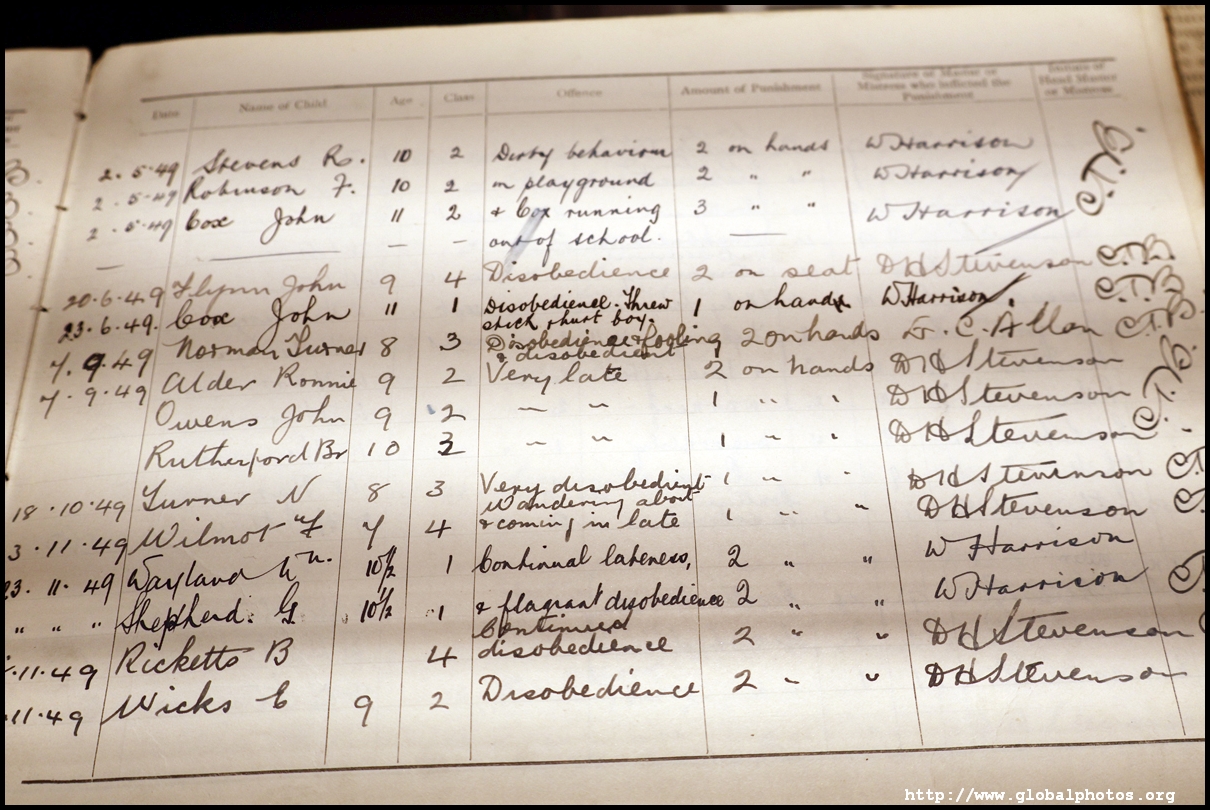 Date Name of Child Age Class Offence Amount of Punishment Signature of Master or Mistress who inflicted the Punishment Initials of Head Master or Mistress
2.5.49 Stevens R. 10 2 Dirty behaviour 2 on hands W Harrison
2.5.49 Robinson F. 10 2 in playground 2 " " W Harrison
2.5.49 Cox John 11 2 & Cox running 3 " " W Harrison
— — — out of school. —
20.6.49 Flynn John 9 4 Disobedience 2 on seat D H Stevenson
23.6.49. Cox John 11 1 Disobedience. Threw 1 on hand W. Harrison.
stick & hurt boy.
7.9.49 Norman Turner 8 3 Disobedience & fooling 2 on hands C. Allan
& disobedient
7.9.49 Alder Ronnie 9 2 Very late 2 on hands D H Stevenson
Owens John 9 2 " " 1 " " D H Stevenson
Rutherford Br 10 2 " " 1 " " D H Stevenson
18.10.49 Turner N 8 3 Very disobedient 1 " " D H Stevenson
Wandering about
3.11.49 Wilmot F 7 4 & coming in late 1 " " D H Stevenson
23.11.49 Wayland Wm. 10½ 1 Continual lateness, 2 " " W Harrison
" " " Shepherd. G 10½ 1 & flagrant disobedience 2 " " W Harrison
Continued
.11.49 Ricketts B 4 disobedience 2 " " D H Stevenson
.11.49 Wicks C 9 2 Disobedience 2 " " D H Stevenson
http://www.globalphotos.org